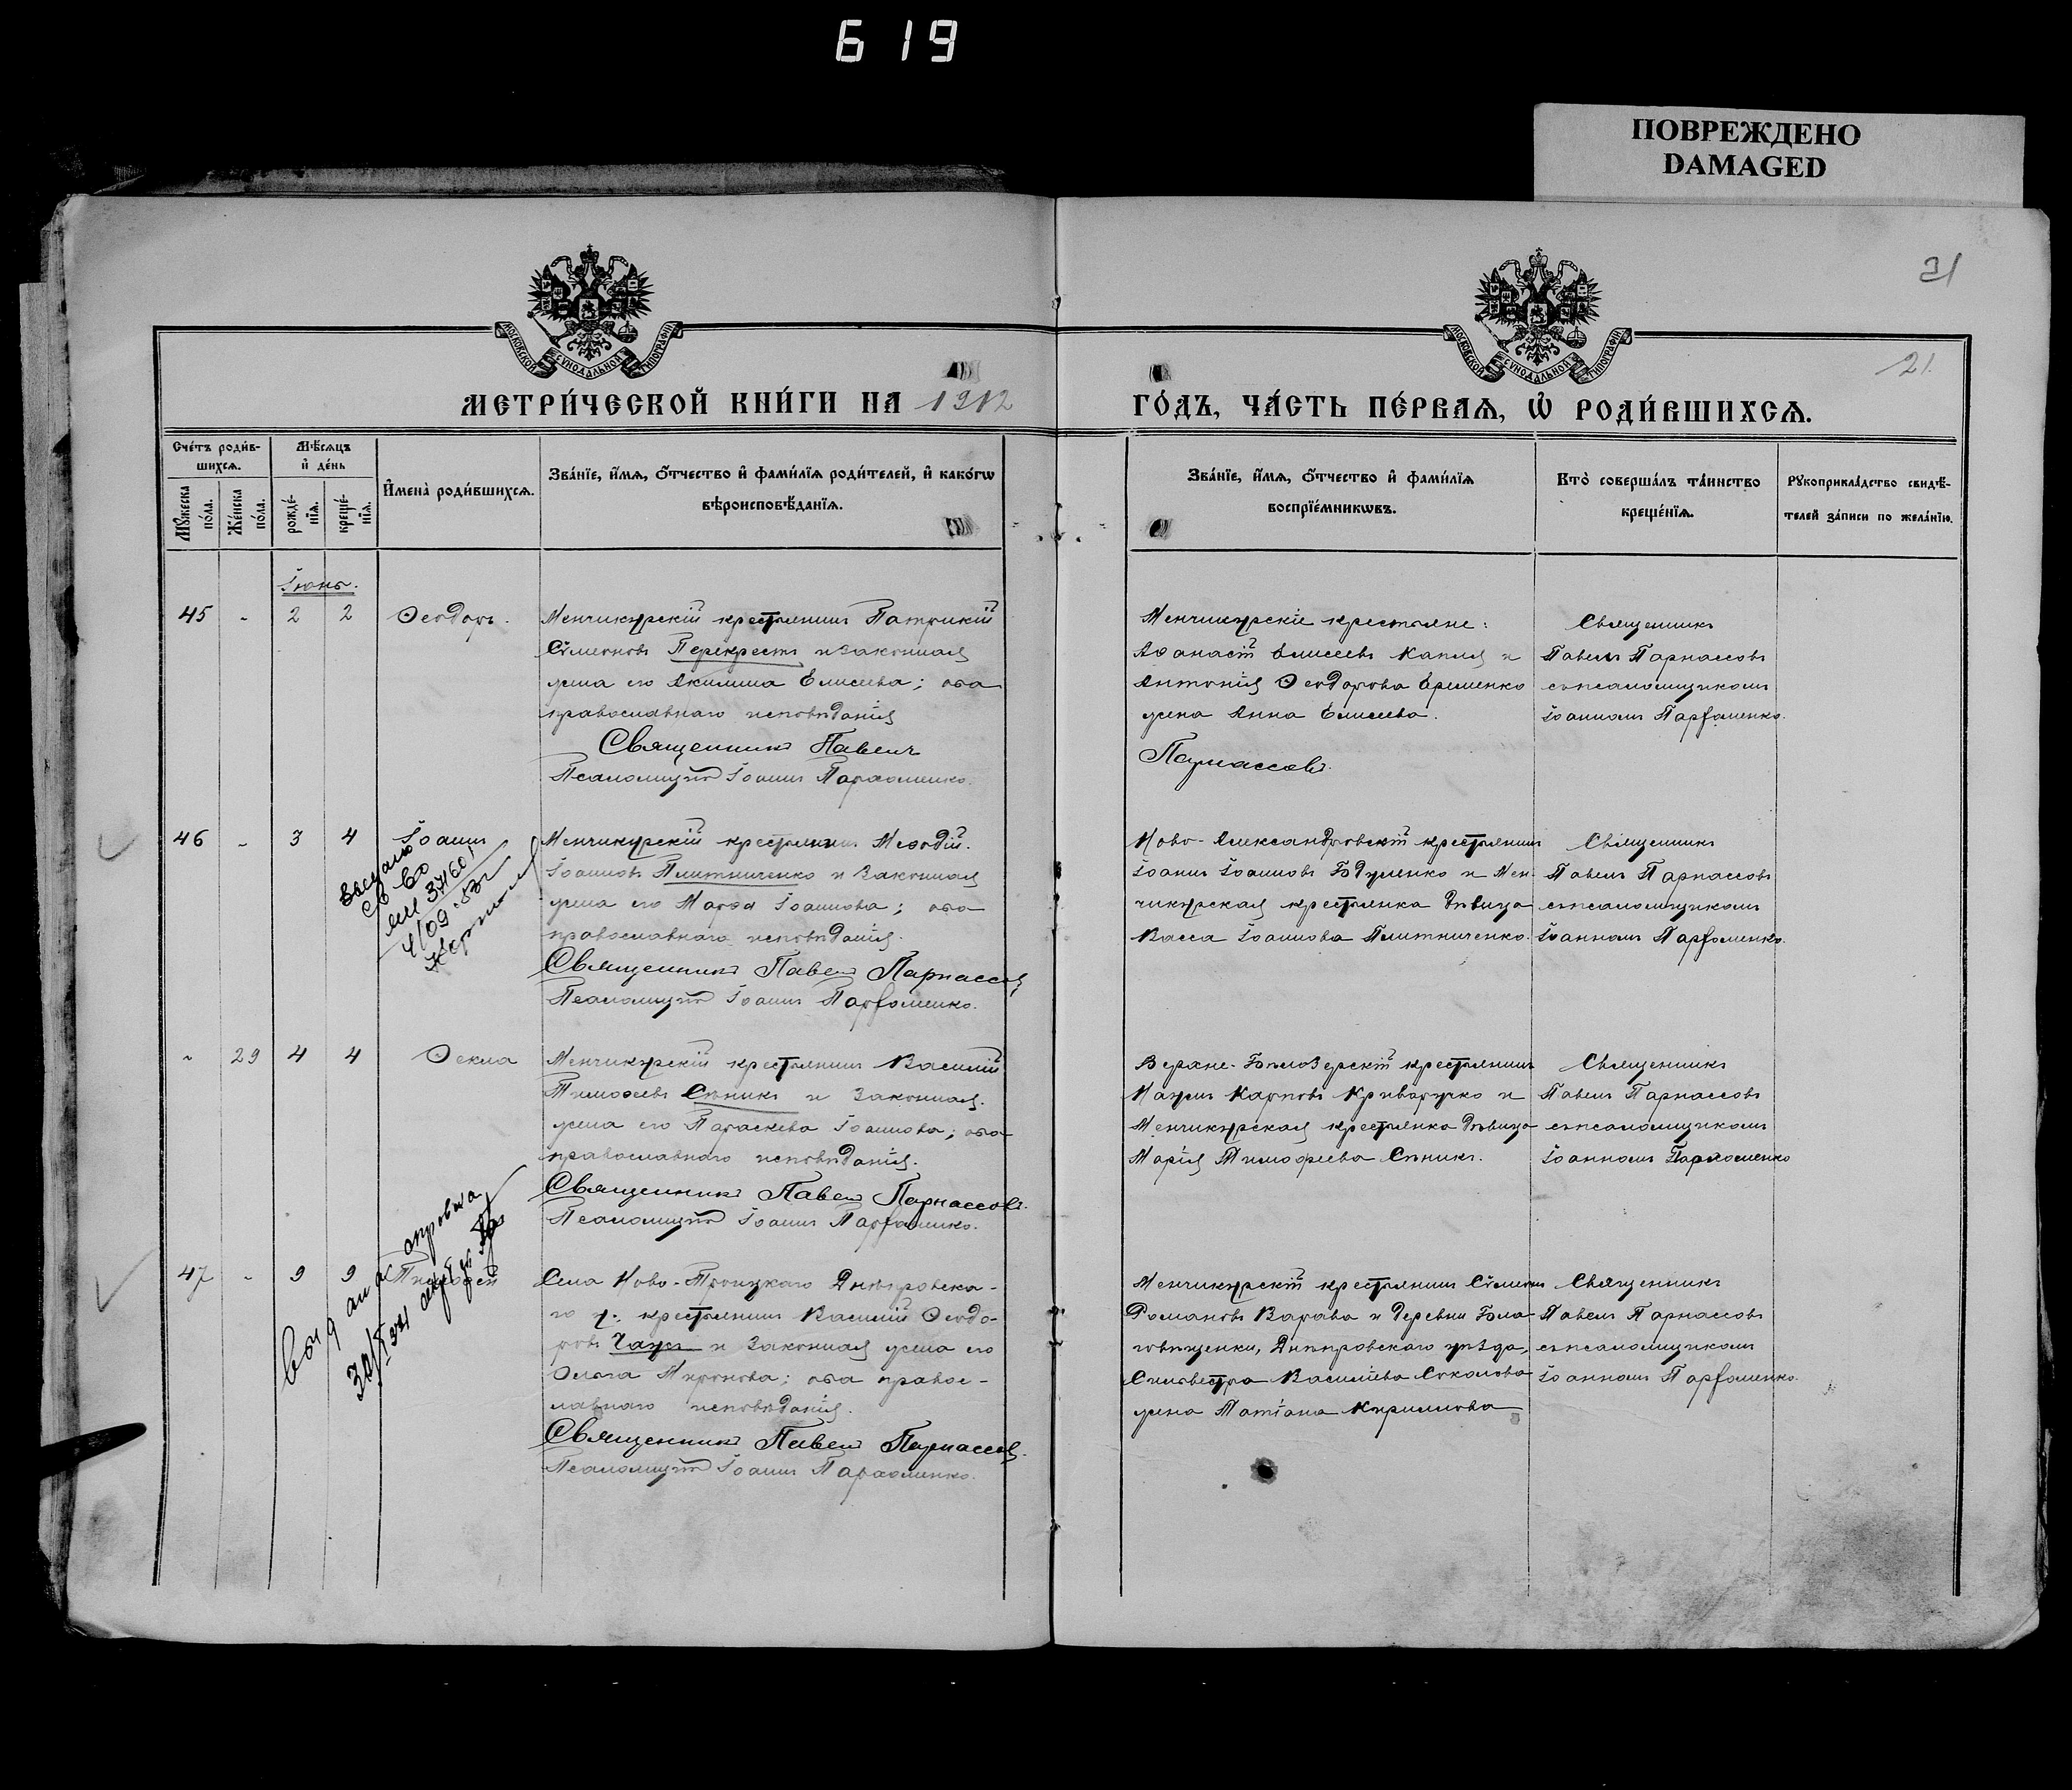 619
ПОВРЕЖДЕНО
DAMAGED
31
21.
МОСКОВСКОЙ СѴНОДАЛЬНОЙ ТИПОГРАФІИ
МОСКОВСКОЙ СѴНОДАЛЬНОЙ ТИПОГРАФІИ
МЕТРИ́ЧЕСКОЙ КНИ́ГИ НА 1912
ГО́ДЪ, ЧА́СТЬ ПЕ́РВАѦ, Ѡ҆ РОДИ́ВШИХСѦ.
Сче́тъ роди́в-
шихсѧ.
Мѣ́сѧцъ
и҆ де́нь
И҆мена̀ роди́вшихсѧ.
Зва́нїе, и҆́мѧ, ѻ҆́тчество и҆ фами́лїѧ роди́телей, и҆ како́гѡ
вѣроисповѣ́данїѧ.
Мꙋ́жеска
по́ла.
Же́нска
по́ла.
рожде́-
нїѧ.
креще́-
нїѧ.
Зва́нїе, и҆́мѧ, ѻ҆́тчество и҆ фами́лїѧ
воспрїе́мникѡвъ.
Кто̀ соверша́лъ та́инство
креще́нїѧ.
Рꙋкоприкла́дство свидѣ́-
телей за́писи по жела́нїю.
Іюнь.
45 - 2 2 Ѳеодоръ.
Менчикурскій крестьянинъ Патрикій
Сѵмеоновъ Перекрестъ и законная
жена его Акилина Елисеева; оба
православнаго исповѣданія
Священникъ Павелъ
Псаломщикъ Іоаннъ Пархоменко.
Менчикурскіе крестьяне:
Аѳанасій Елисеевъ Капля и
Антонія Ѳеодорова Еременко
жена Анна Елисеева.
Парнассовъ.
Священникъ
Павелъ Парнассовъ
съ псаломщикомъ
Іоанномъ Парфоменко.
46 - 3 4 Іоаннъ
Менчикурскій крестьянинъ Меѳодій
Іоанновъ Плитниченко и законная
жена его Марѳа Іоаннова; оба
православнаго исповѣданія.
Священникъ Павелъ Парнассовъ
Псаломщикъ Іоаннъ Парфоменко.
Ново-Александровскій крестьянинъ
Іоаннъ Іоанновъ и Мен-
чикурская крестьянка дѣвица
Васса Іоаннова Плитниченко.
Священникъ
Павелъ Парнассовъ
съ псаломщикомъ
Іоанномъ Парфоменко.
- 29 4 4 Ѳекла
Менчикурскій крестьянинъ Василій
Тимоѳеевъ Сѣникъ и законная
жена его Параскева Іоаннова; оба
православнаго исповѣданія.
Священникъ Павелъ Парнассовъ.
Псаломщикъ Іоаннъ Парфоменко.
Верхне-Бѣлозерскій крестьянинъ
Наумъ Карповъ Криворучко и
Менчикурская крестьянка дѣвица
Марія Тимофеева Сѣникъ.
Священникъ
Павелъ Парнассовъ
съ псаломщикомъ
Іоанномъ Пархоменко
47 - 9 9 Тимофей
Села Ново-Троицкаго Днѣпровска-
го у. крестьянинъ Василій Ѳеодо-
ровъ и законная жена его
Ольга Миронова; оба право-
славнаго исповѣданія.
Священникъ Павелъ Парнассовъ.
Псаломщикъ Іоаннъ Пархоменко.
Менчикурскій крестьянинъ Сѵмеонъ
Романовъ Варава и деревни Бла-
говѣщенки, Днѣпровскаго уѣзда,
Сильвестра Василіева Соколова
жена Татіана Кириллова
Священникъ
Павелъ Парнассовъ
съ псаломщикомъ
Іоанномъ Парфоменко.